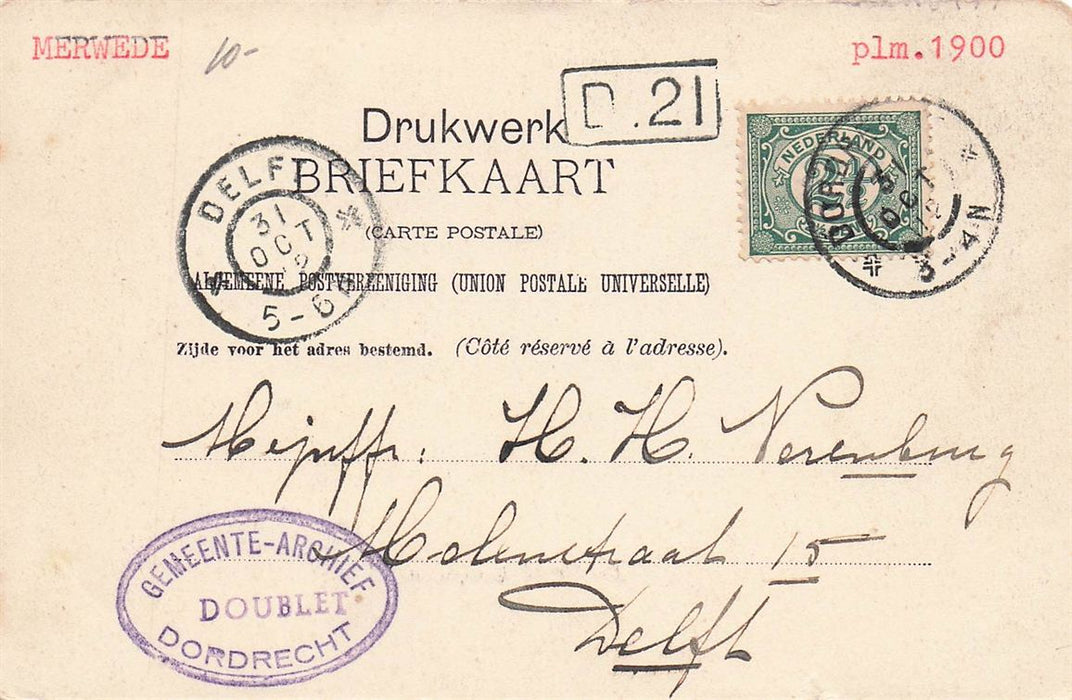 MERWEDE
10-
plm.1900
D.21
Drukwerk
BRIEFKAART
(CARTE POSTALE)
ALGEMEENE POSTVEREENIGING (UNION POSTALE UNIVERSELLE)
Zijde voor het adres bestemd. (Côté réservé à l'adresse).
DELFT
31
OCT
12
5-6
NEDERLAND
2½
DORD
31
OCT
12
3-4N
Mejuffr: H. H. Verenburg
Molenstraat 15
Delft
GEMEENTE-ARCHIEF
DOUBLET
DORDRECHT